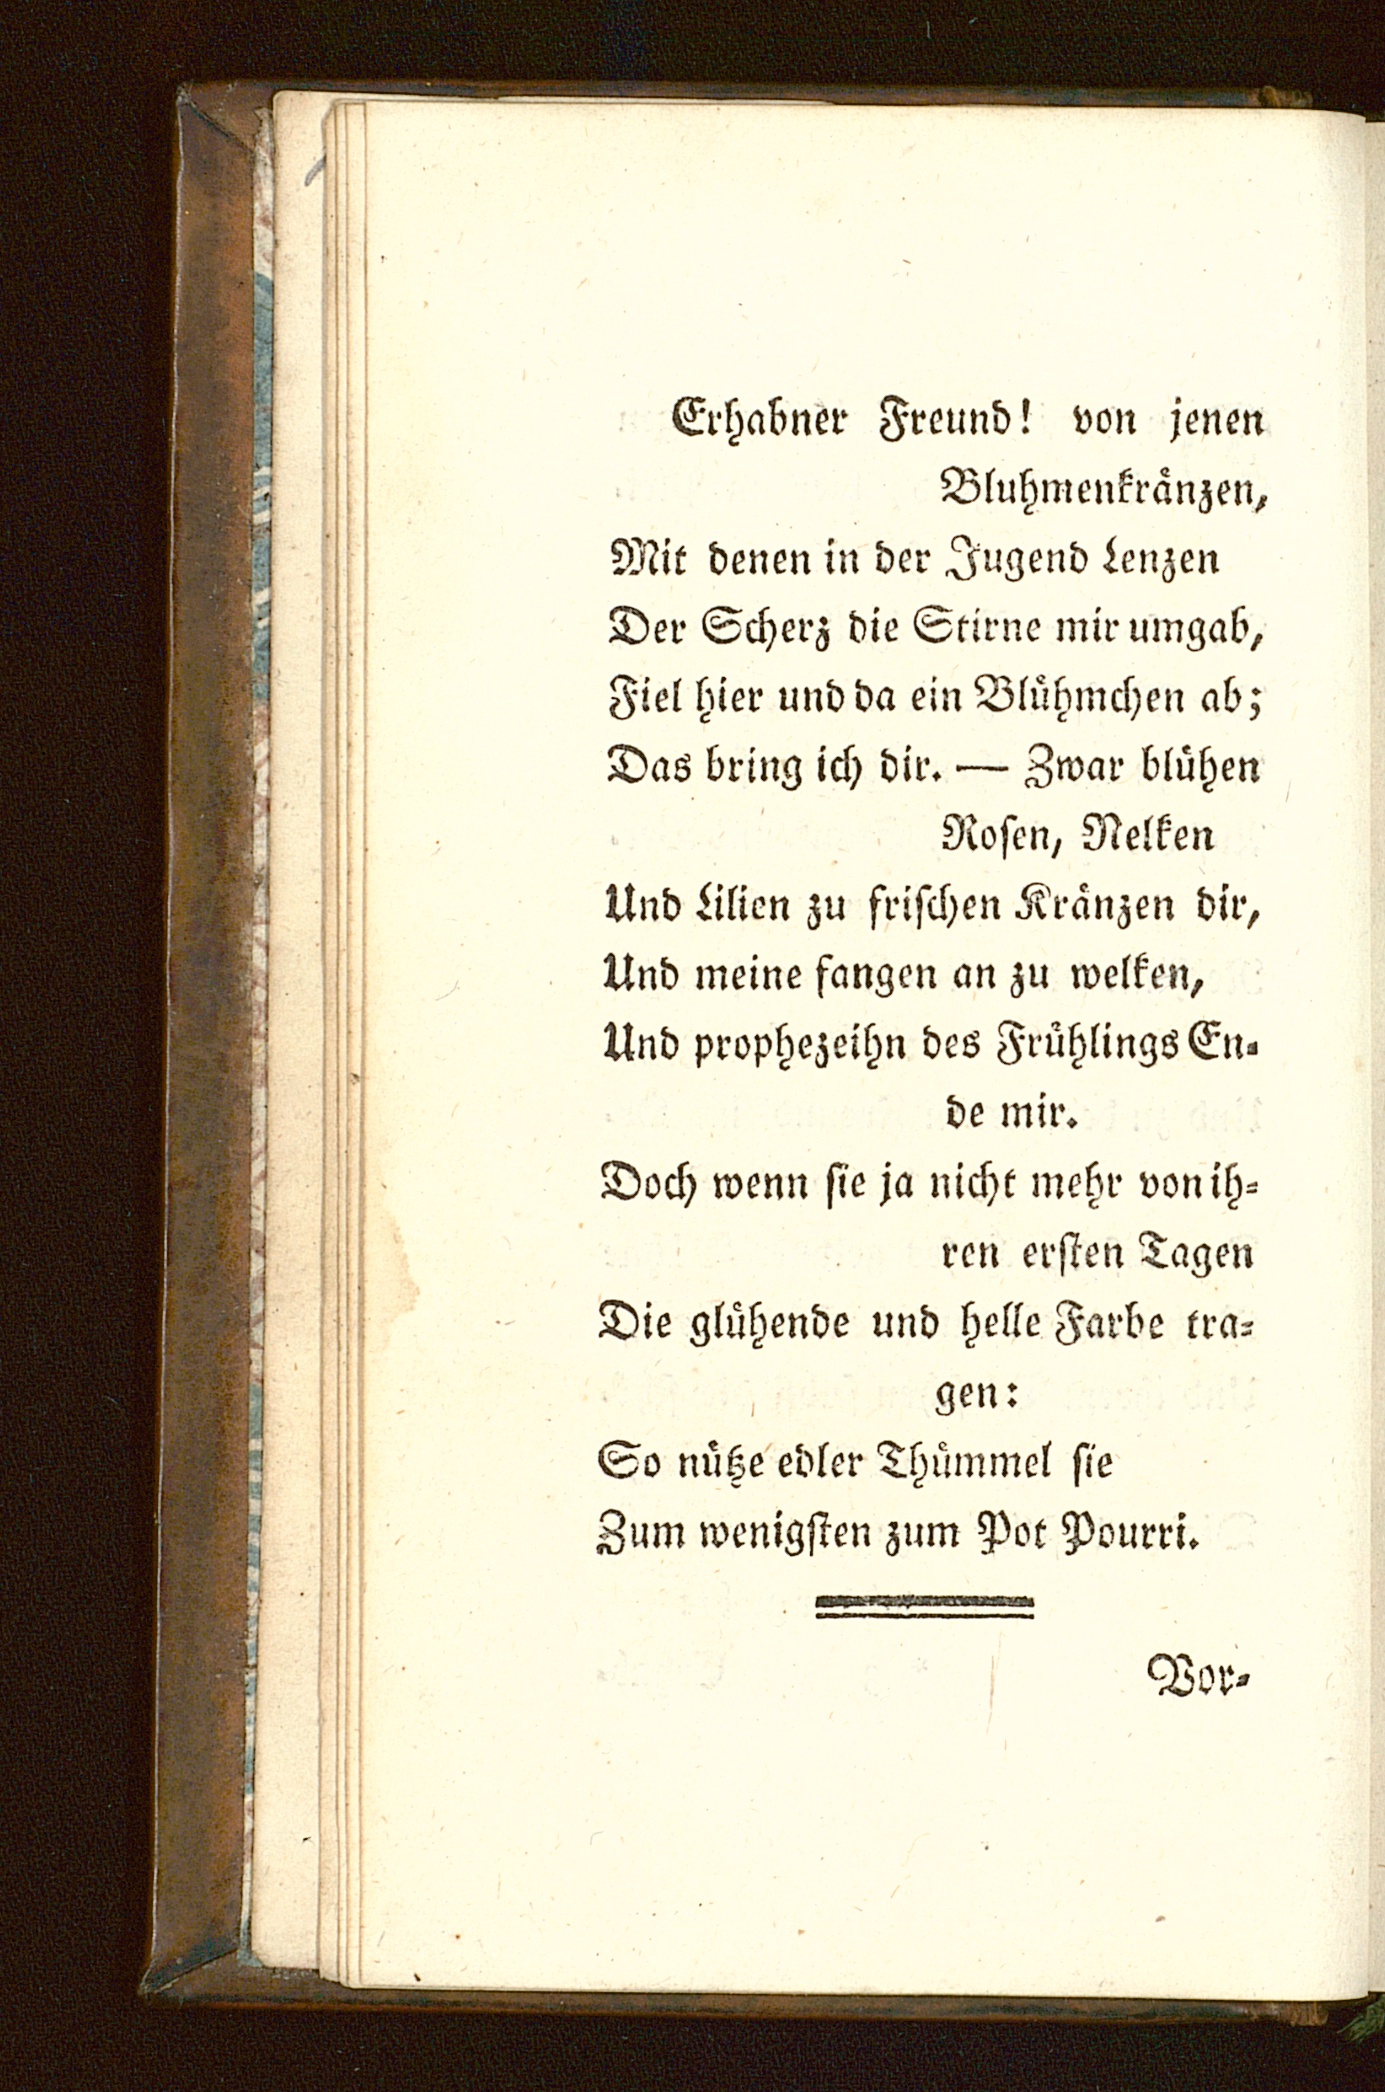 Erhabner Freund! von jenen
Bluhmenkränzen,
Mit denen in der Jugend Lenzen
Der Scherz die Stirne mir umgab,
Fiel hier und da ein Blühmchen ab;
Das bring ich dir. — Zwar blühen
Roſen, Nelken
Und Lilien zu friſchen Kränzen dir,
Und meine fangen an zu welken,
Und prophezeihn des Frühlings En-
de mir.
Doch wenn ſie ja nicht mehr von ih-
ren erſten Tagen
Die glühende und helle Farbe tra-
gen:
So nütze edler Thümmel ſie
Zum wenigſten zum Pot Pourri.
Vor-